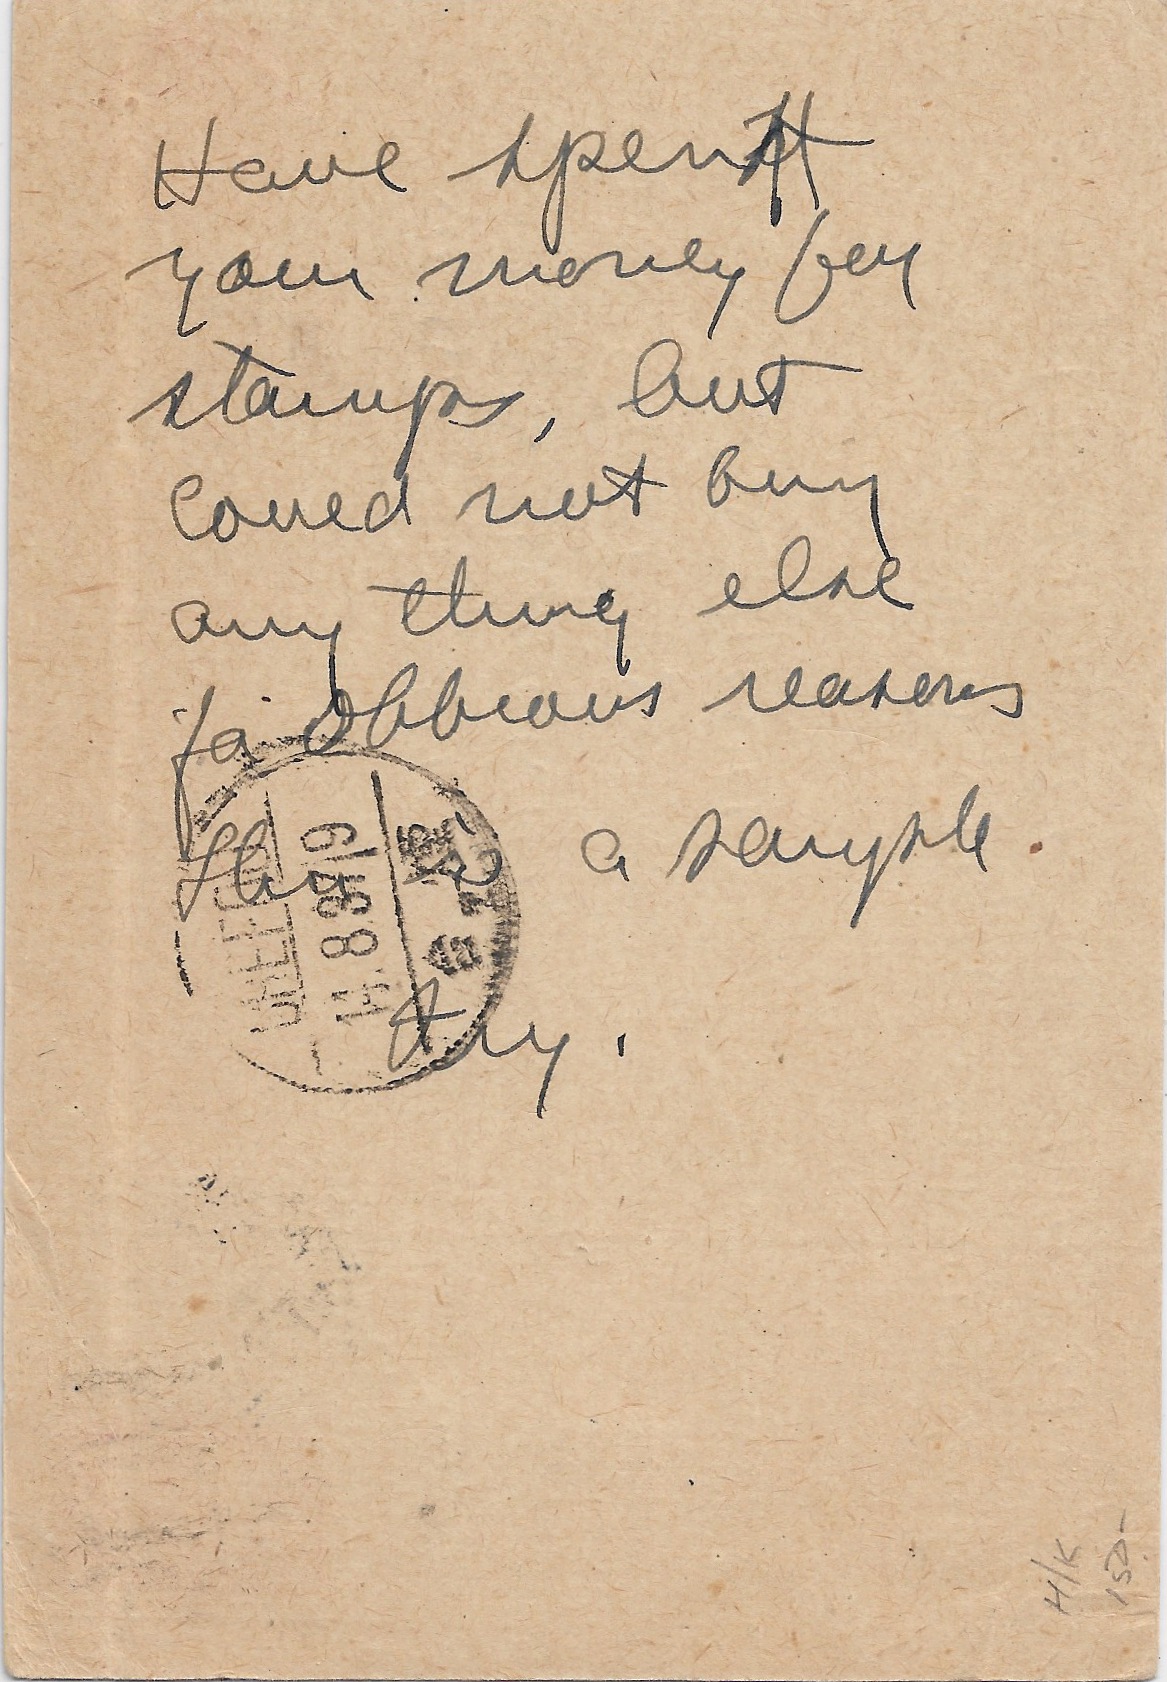 Have spent
your money for
stamps, but
could not buy
any thing else
for Obbvious reasons
This is a sample.
CHEFOO
14.8.39.19
H/K
150-